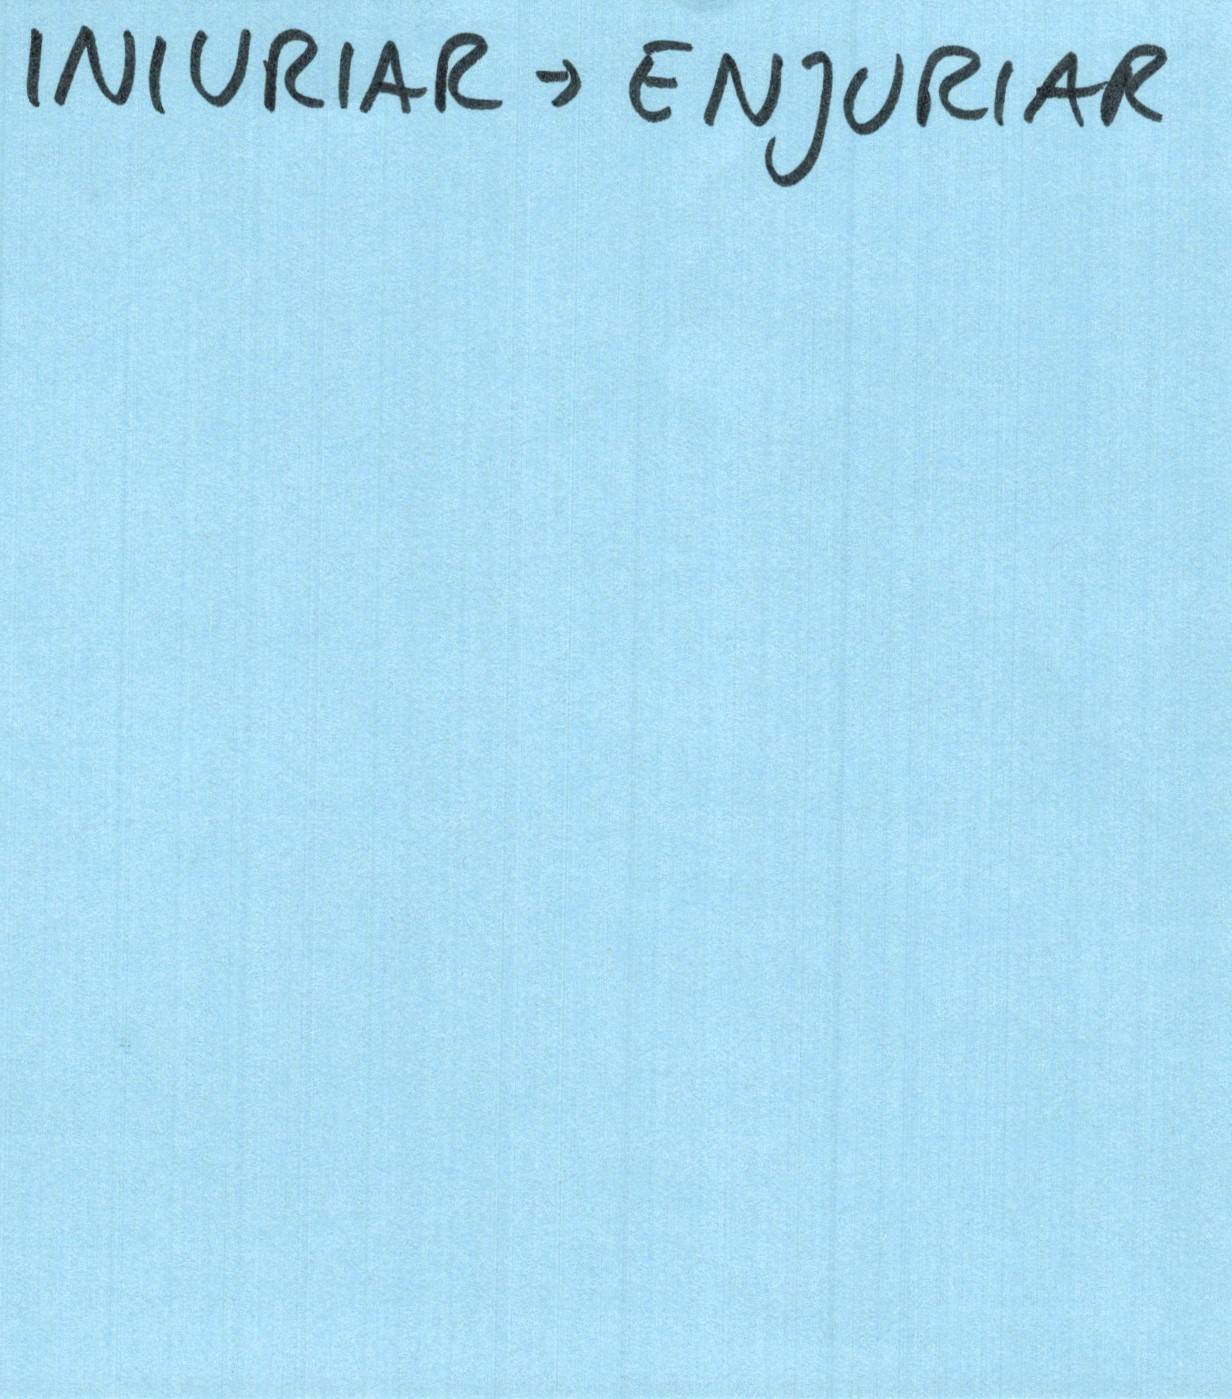 INIURIAR → ENJURIAR